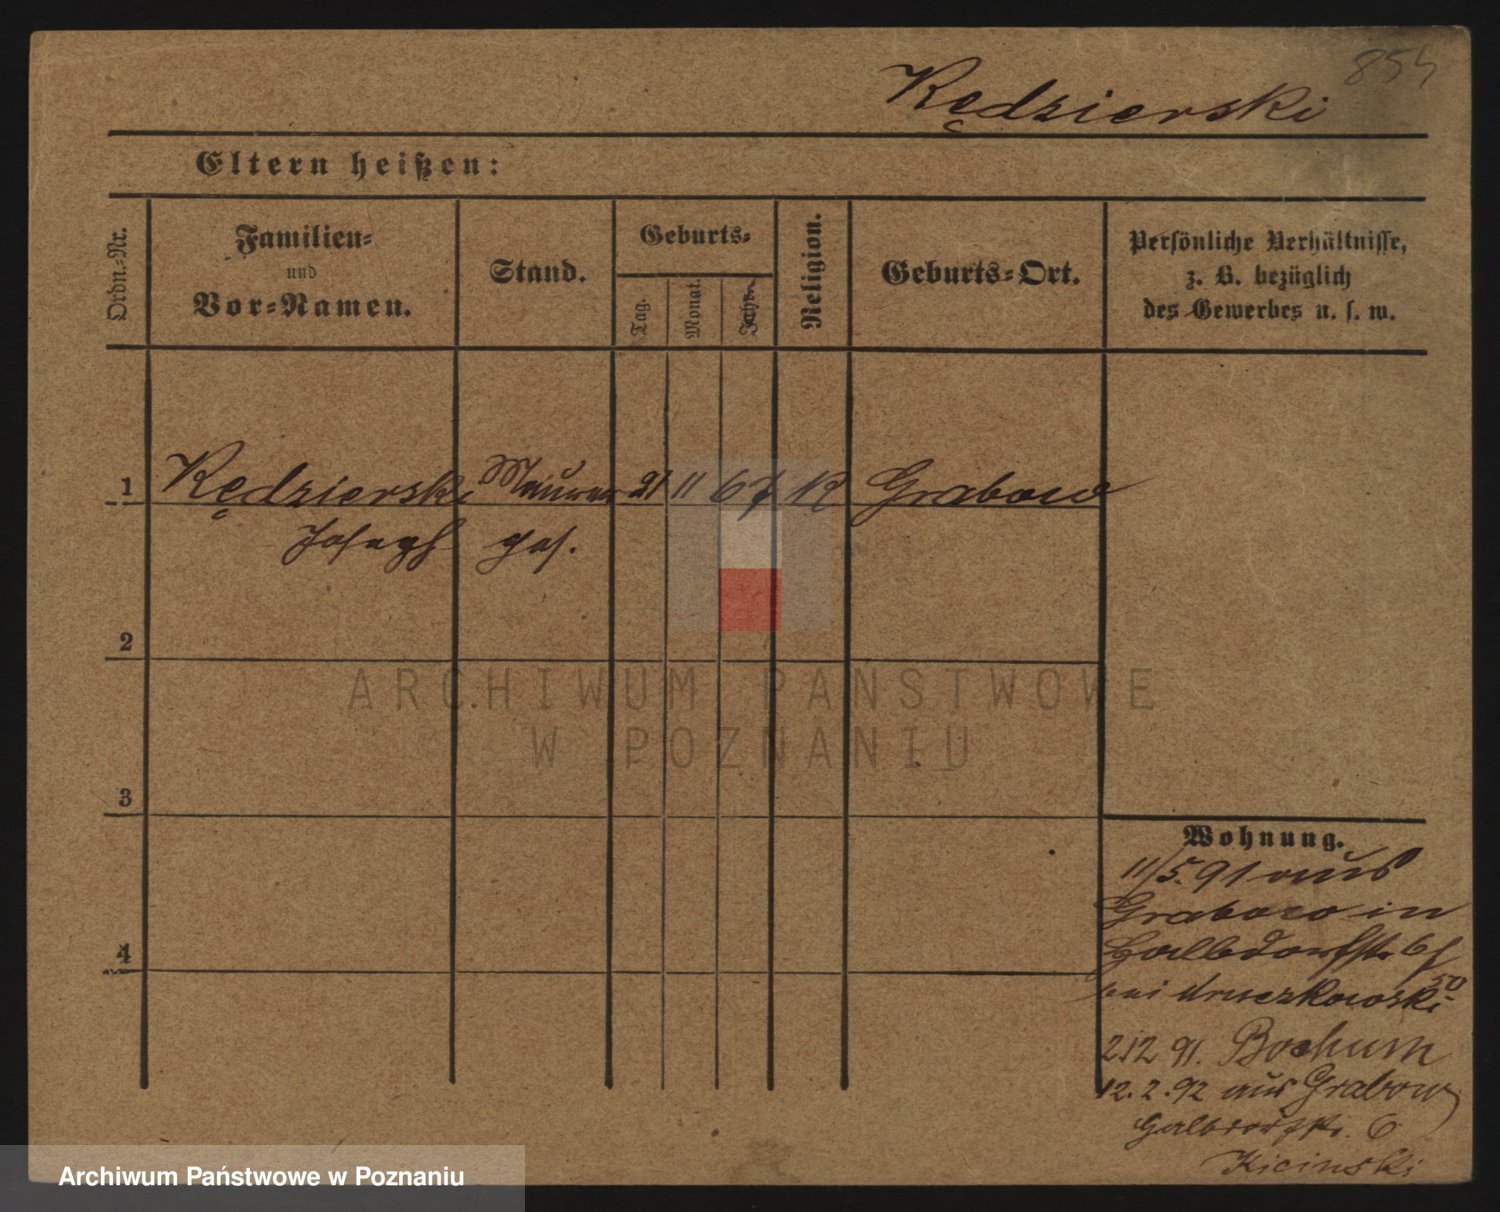 854
Kędzierski
Eltern heißen:
Ordn.-Nr.
Familien-
und
Vor-Namen.
Stand.
Geburts-
Tag.
Monat.
Jahr.
Religion.
Geburts-Ort.
Persönliche Verhältnisse,
z. B. bezüglich
des Gewerbes u. s. w.
1
Kędzierski Maurer 21 11 67 K Grabow
Joseph ges.
2
3
4
Wohnung.
11/5.91 aus
Grabow in
Halbdorfstr 6
bei
2.12 91. Bochum
12.2.92 aus Grabow
Halbdorfstr. 6
Kicinski
ARCHIWUM PAŃSTWOWE
W POZNANIU
Archiwum Państwowe w Poznaniu